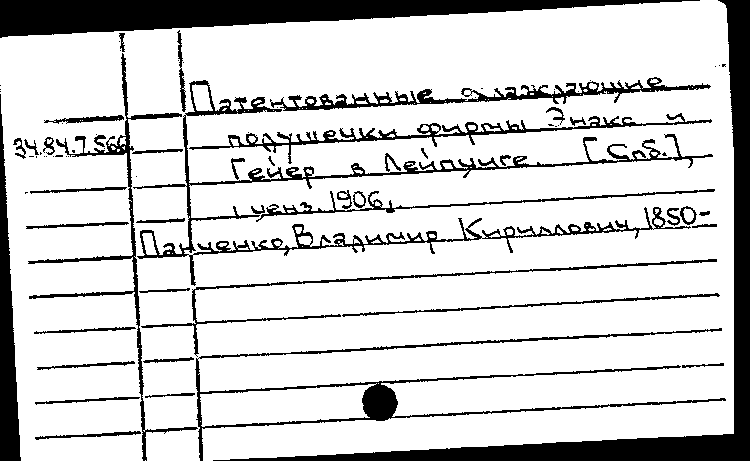 Патентованные охлаждающие
34.84.7.566. подушечки фирмы Знака и
Гейер в Лейпциге. [Спб.],
ценз. 1906.
Панченко, Владимир Кириллович, 1850-